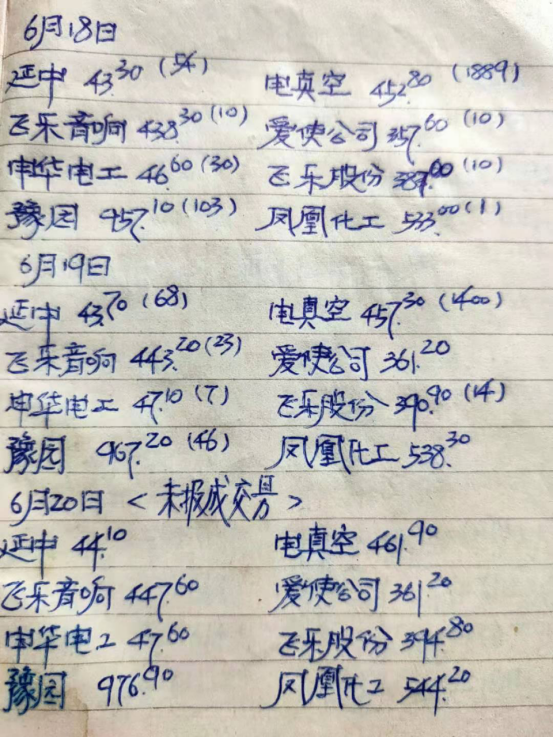 6月18日
延中 43.30 (54) 电真空 452.80 (1889)
飞乐音响 438.30 (10) 爱使公司 357.60 (10)
申华电工 46.60 (30) 飞乐股份 387.00 (10)
豫园 957.10 (103) 凤凰化工 533.00 (1)
6月19日
延中 43.70 (68) 电真空 457.30 (1400)
飞乐音响 443.20 (23) 爱使公司 361.20
申华电工 47.10 (7) 飞乐股份 390.90 (14)
豫园 967.20 (46) 凤凰化工 538.30
6月20日 <未报成交易>
延中 44.10 电真空 461.90
飞乐音响 447.60 爱使公司 361.20
申华电工 47.60 飞乐股份 394.80
豫园 976.90 凤凰化工 544.20